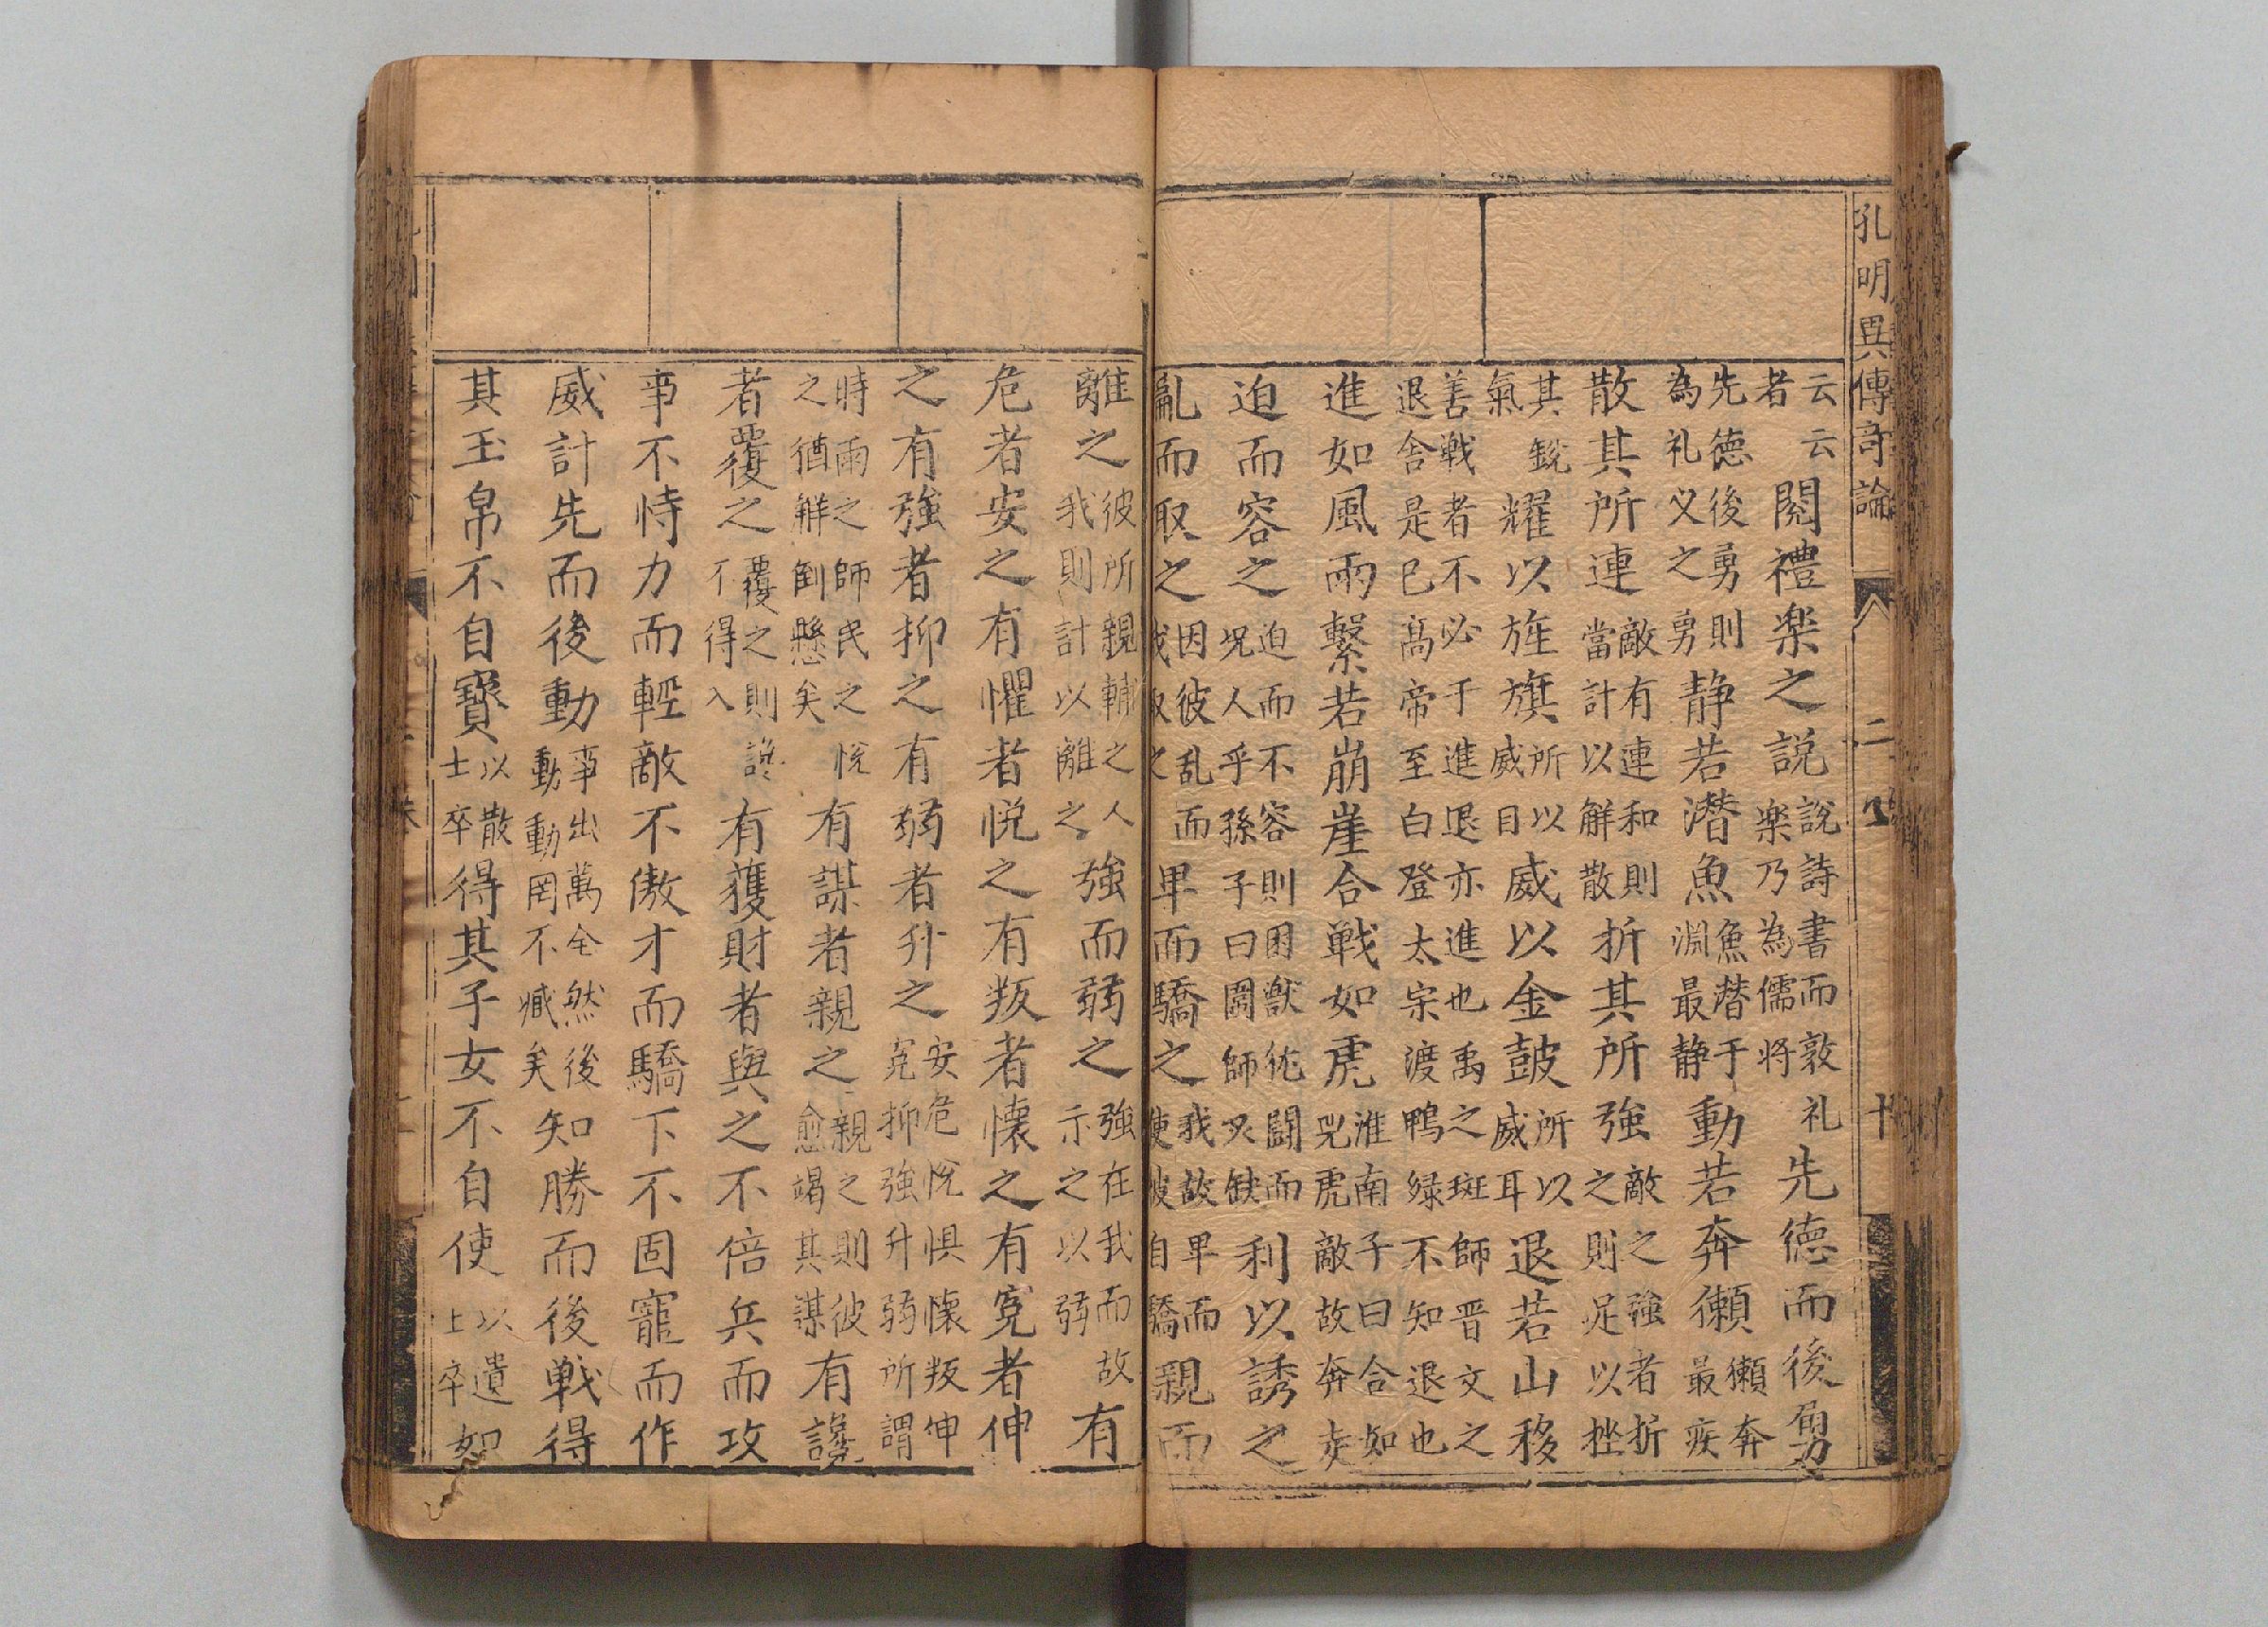 孔明異傳奇論 二 十
云云者閱禮楽之説說詩書而敦礼楽乃為儒将先德而後勇
先德後勇則為礼义之勇静若潜魚魚替于淵最静動若奔獺獺奔最疾
散其所連敵有連和則當計以解散折其所強敵之強者折之則足以挫
其銳氣耀以旌旗所以威目威以金鼓所以威耳退若山移
善戦者不必于進退亦進也禹之班師晋文之退舍是已高帝至白登太宗渡鴨緑不知退也
進如風雨繫若崩崖合戦如虎淮南子曰合如兕虎敵故奔走
迫而容之迫而不容則困獣犹闘而况人乎孫子曰圍師必缺利以誘之
亂而取之因彼乱而我取之卑而驕之我故卑而使彼自驕親而
離之彼所親輔之人我則計以離之強而弱之強在我而故示之以弱有
危者安之有懼者悦之有叛者懷之有冤者伸
之有強者抑之有弱者升之安危悅惧懷叛伸冤抑強升弱所謂
時雨之師民之悅之猶解倒懸矣有謀者親之親之則彼愈竭其謀有讒
者覆之覆之則讒不得入有獲財者與之不倍兵而攻
亊不恃力而輕敵不傲才而驕下不固寵而作
威計先而後動亊出萬全然後動動罔不臧矣知勝而後戦得
其玉帛不自寳以散士卒得其子女不自使以遺士卒如